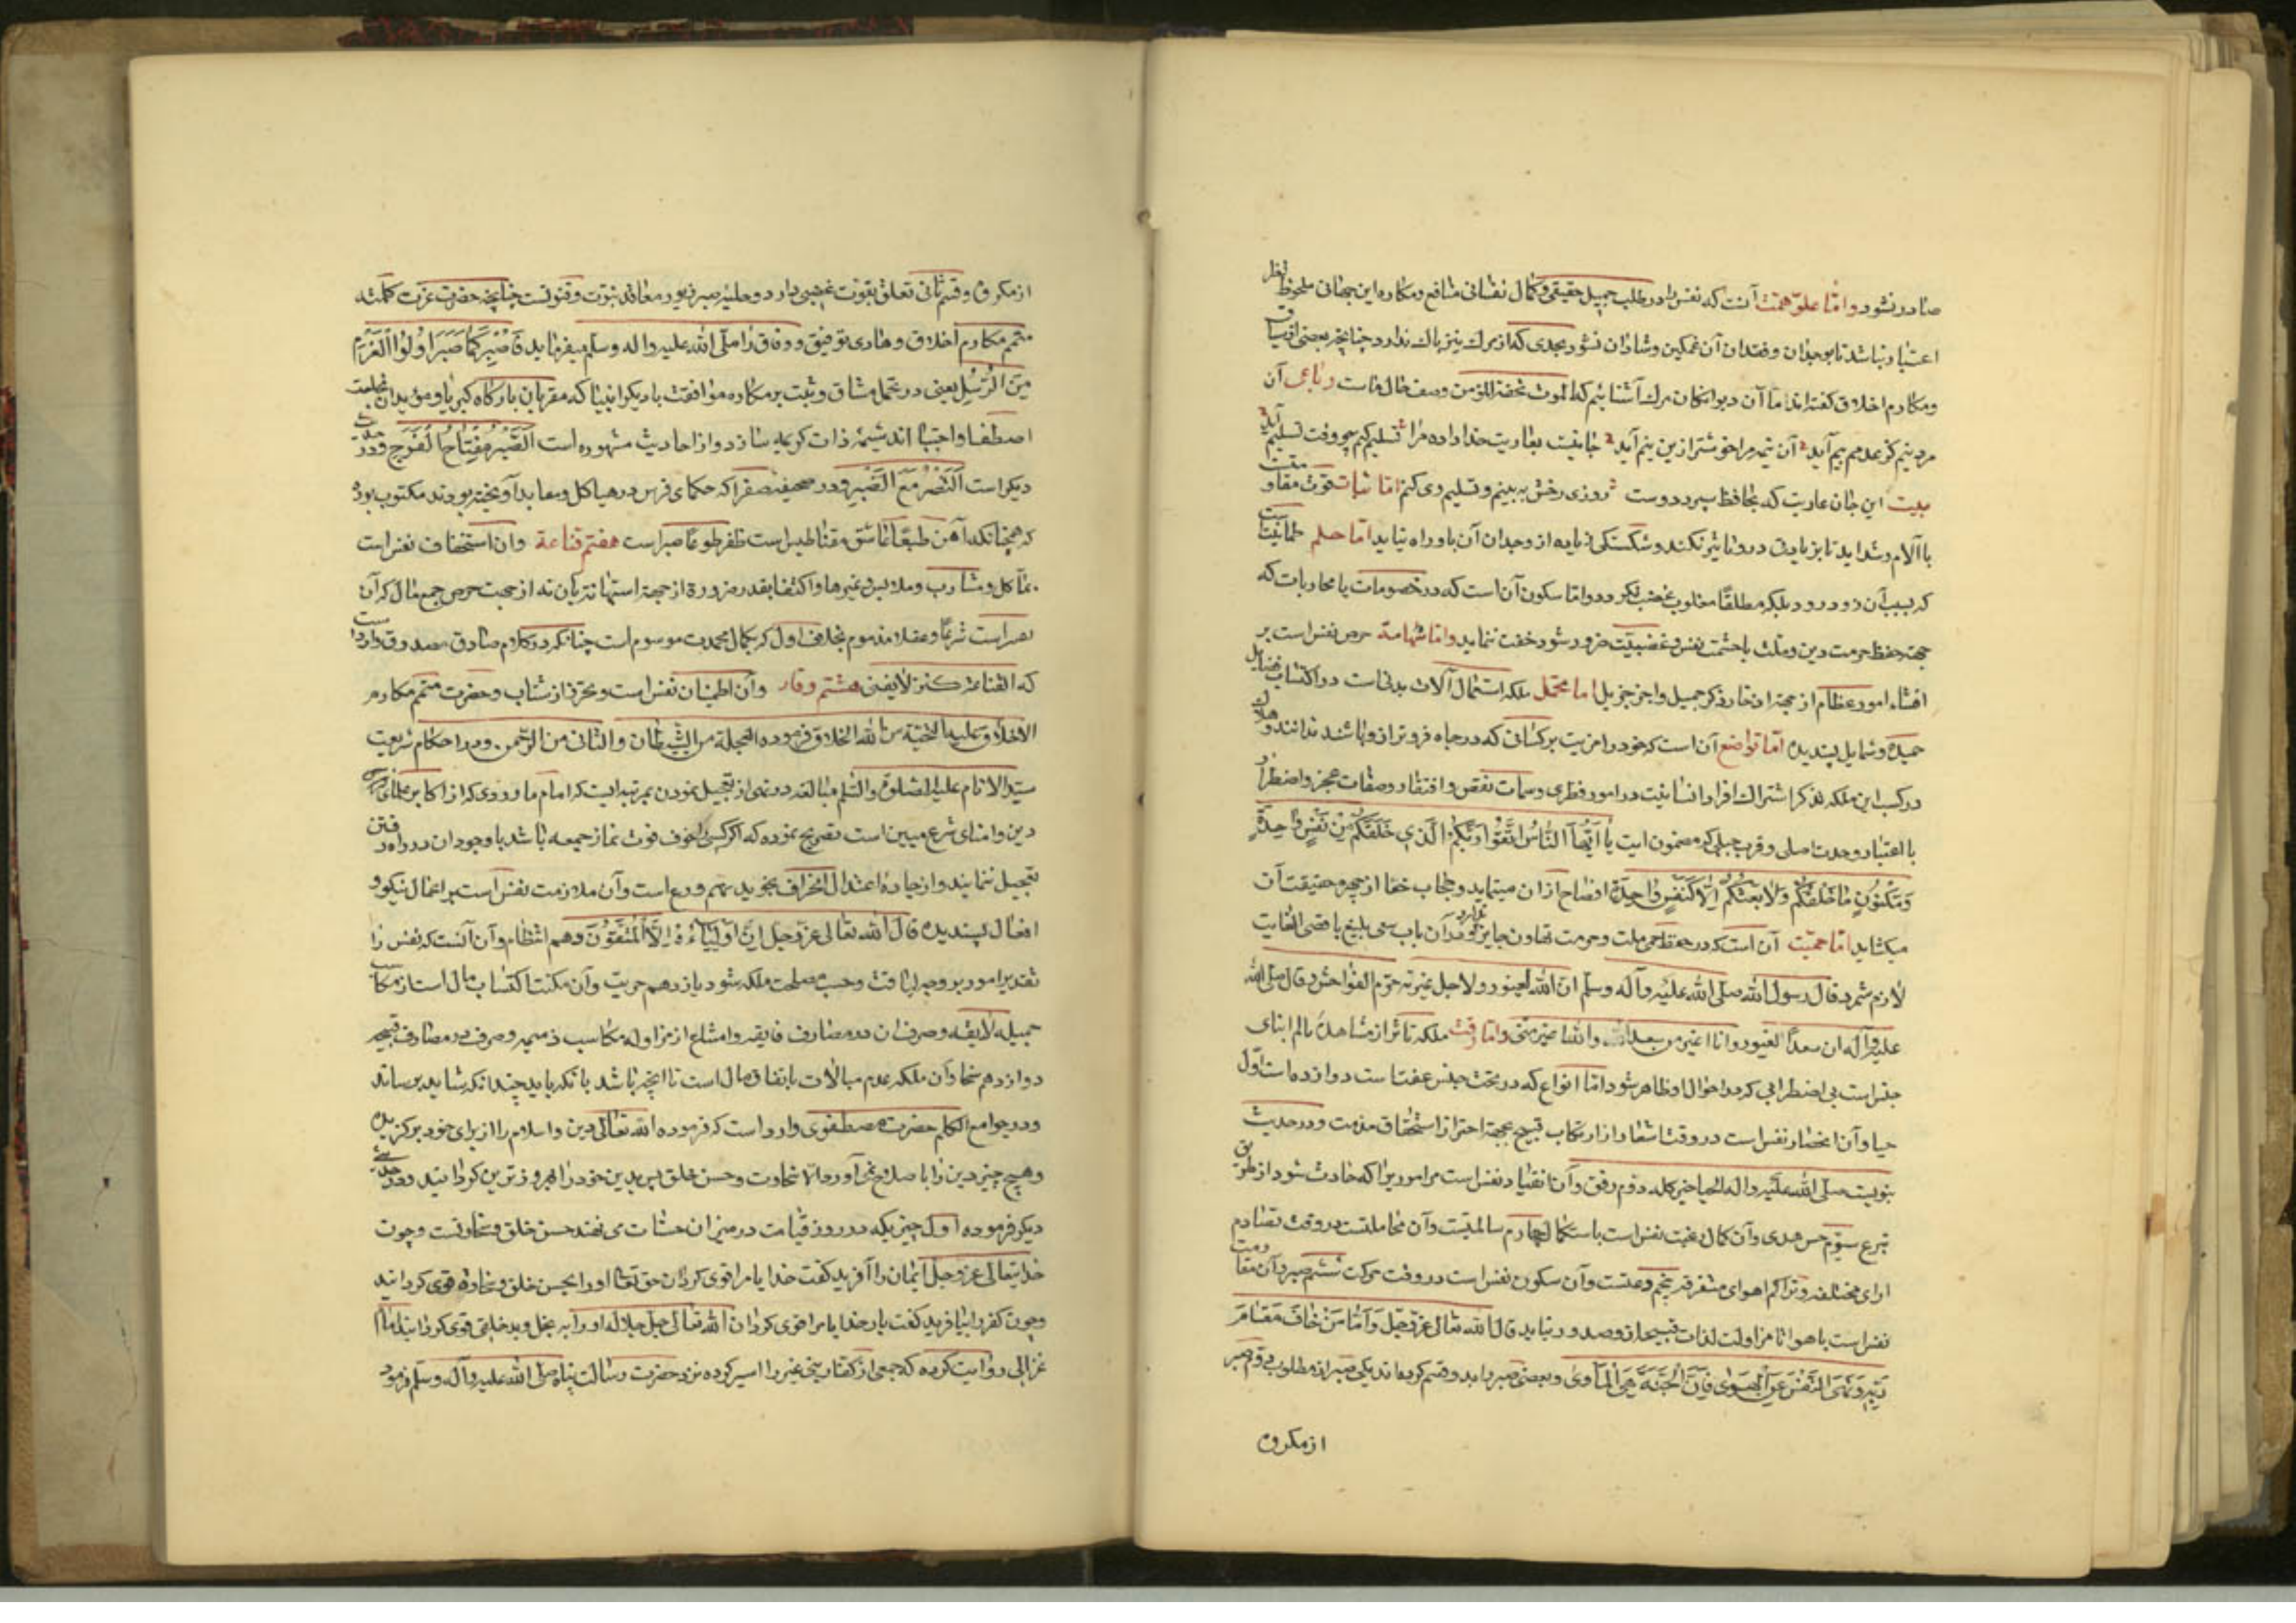 صادر نشود واما علو همت آنست که نفس را در طلب جمیل حقیقی و کمال نفسانی منافع و مکاره این جهانی ملحوظ نظر
اعتبار نباشد تا بوجدان و فقدان آن غمکین و شادان نشود بحدی که از مرک نیز باک ندارد چنانچه بعضی از
ومکارم اخلاق کفته اند ما آن دیوانکان مرک آشنائیم که الموت تحفة المؤمن وصف حال ماست رباعی آن
مرد نیم کز عدمم بیم آید آن نیمه مرا خوشتر ازین نیم آید جانیست بعاریت خدا داده مرا تسلیم کنم چو وقت تسلیم آید
بیت این جان عاریت که بحافظ سپرد دوست روزی رخش به بینم و تسلیم وی کنم اما ثبات قوت مقاومت
با آلام و شداید تا بزیادتی در وی تاثیر نکند و شکستکی از وجدان آن باو راه نیابد اما حلم طمانیت
که بسبب آن زود نرود بلکه مطلقا مغلوب غضب نکردد واما سکون آن است که در خصومات یا محاربات که
جهة حفظ حرمت دین و ملت یا حشمت نفس و غضبیت ضرور شود خفت ننماید واما شهامة حرص نفس است بر
افشاء امور عظام از جهة ادخار ذکر جمیل واجر جزیل اما تحمل ملکه استعمال آلات بدنی است در اکتساب فضایل
حمیده وشمایل پسندیده اما تواضع آن است که خود را مزیت بر کسانی که در جاه فروتر از و باشند نداند و
در کسب این ملکه تذکر اشتراک افراد انسانیت در امور فطری وسمات نقص وافتقار وصفات عجز واضطرار
با اعتبار وحدت اصلی وقرب جبلی که مضمون ایت یا ایها الناس اتقوا ربکم الذی خلقکم من نفس واحدة
ومکنون ما خلقکم ولا بعثکم الا کنفس واحدة افصاح از ان مینماید وحجاب خفا از چهره حقیقت آن
میکشاید اما حمیت آن است که در حفظ حمی ملت وحرمت تهاون جایز ندارد ودر آن باب سعی بلیغ باقصی الغایت
لازم شمرد قال رسول الله صلی الله علیه وآله وسلم ان الله لغیور ولاجل غیرته حرم الفواحش وقال صلی الله
علیه وآله ان سعدا لغیور وانا اغیر من سعد والله اغیر منی واما رقت ملکه تاثر از مشاهده تالم ابنای
جنس است بی اضطرابی که در احوال او ظاهر شود اما انواع که در تحت جنس عفتست دوازده است اول
حیا وآن انحصار نفس است در وقت استشعار از ارتکاب قبیح بجهة احتراز استحقاق مذمت ودر حدیث
نبویست صلی الله علیه واله الحیا خیر کله دوم رفق وآن انقیاد نفس است مر امور یرا که حادث شود از طریق
تبرع سیوم حسن هدی وآن کمال رغبت نفس است باستکمال چهارم سالمت وآن مجاملتست در وقت تصادم
ارای مختلفه وتراکم اهوای متفرقه پنجم دعتست وآن سکون نفس است در وقت حرکت ششم صبر وآن مقاومت
نفس است باهوا تا مزاولت لذات قبیحه از وصدور نیابد قال الله تعالی عز وجل واما من خاف مقام
ربه ونهی النفس عن الهوی فان الجنة هی المأوی وبعضی صبر را بدو قسم کرده اند یکی صبر از مطلوب دوم صبر
از مکروه
از مکروه وقسم ثانی تعلق بقوت غضبی دارد وحلیه صبر زیور معاقد نبوت وفتوتست چنانچه حضرت عزت کلمته
متمم مکارم اخلاق وهادی توفیق ووفاق را صلی الله علیه واله وسلم میفرماید فاصبر کما صبر اولوا العزم
من الرسل یعنی در تحمل مشاق وثبت بر مکاره موافقت با دیکر انبیا که مقربان بارکاه کبریا ومؤیدان بخلعت
اصطفا واجتبا اند شیمه ذات کریمه سازد واز احادیث مشهوره است الصبر مفتاح الفرج ودر حدیث
دیکر است النصر مع الصبر ودر صحیفه صفرا که حکمای فرس در هیاکل ومعابد آویخته بودند مکتوب بوده
که همچنانکه آهن طبعا عاشق مقناطیس است ظفر طوعا صبر است هفتم قناعة وان استخفاف نفس است
بمآکل ومشارب وملابس وغیرها واکتفا بقدر ضرورة از جهة استهانة بآن نه از جهت حرص جمع مال که آن
شرعا وعقلا مذموم بخلاف اول که بکمال محمدت موسوم است چنانکه در کلام صادق مصدوق وارد است
که القناعة کنز لا یفنی هشتم وقار وآن اطمینان نفس است وتحرز از شتاب وحضرت متمم مکارم
الاخلاق علیه التحیة من الله الخلاق فرموده العجلة من الشیطان والتانی من الرحمن ودر احکام شریعت
سید الانام علیه الصلوة والسلم مبالغه در نهی از تعجیل نمودن بمرتبه ایست که امام ماوردی که از اکابر علمای
دین وامنای شرع مبین است تصریح نموده که اکر کسی را خوف فوت نماز جمعه باشد با وجود ان در راه رفتن
تعجیل ننمایند واز جاده اعتدال انحراف نجوید نهم ورع است وآن ملازمت نفس است بر اعمال نیکو و
افعال پسندیده قال الله تعالی عز وجل ان اولیاءه الا المتقون دهم انتظام وآن آنست که نفس را
تقدیر امور بر وجه لیاقت وحسب مصلحت ملکه شود یازدهم حریت وآن مکنت اکتساب مال است از مکاسب
جمیله لایقه وصرف ان در مصارف فایقه وامتناع از مزاوله مکاسب ذمیمه وصرف در مصارف قبیحه
دوازدهم سخا وآن ملکه عدم مبالات بانفاق مال است تا انچه باشد بانکه باید چندانکه شاید برساند
ودر جوامع الکلم حضرت مصطفوی وارد است که فرموده الله تعالی دین واسلام را از برای خود برکزیده
وهیچ چیز دین را باصلاح نمی آورد الا سخاوت وحسن خلق پس بدین خود را کردانید ودر حدیث
دیکر فرموده اول چیزیکه در روز قیامت در میزان حسنات می نهند حسن خلق وسخاوتست وچون
خدایتعالی عز وجل ایمان را آفرید کفت خدایا مرا قوی کردان حق تعالی او را بحسن خلق وسخاوة قوی کردانید
وچون کفر را بیافرید کفت بار خدایا مرا قوی کردان الله تعالی جل جلاله او را به بخل وبد خلقی قوی کردانید امام
غزالی روایت کرده که جمعی از کفار را اسیر کرده نزد حضرت رسالت پناه صلی الله علیه وآله وسلم فرمود